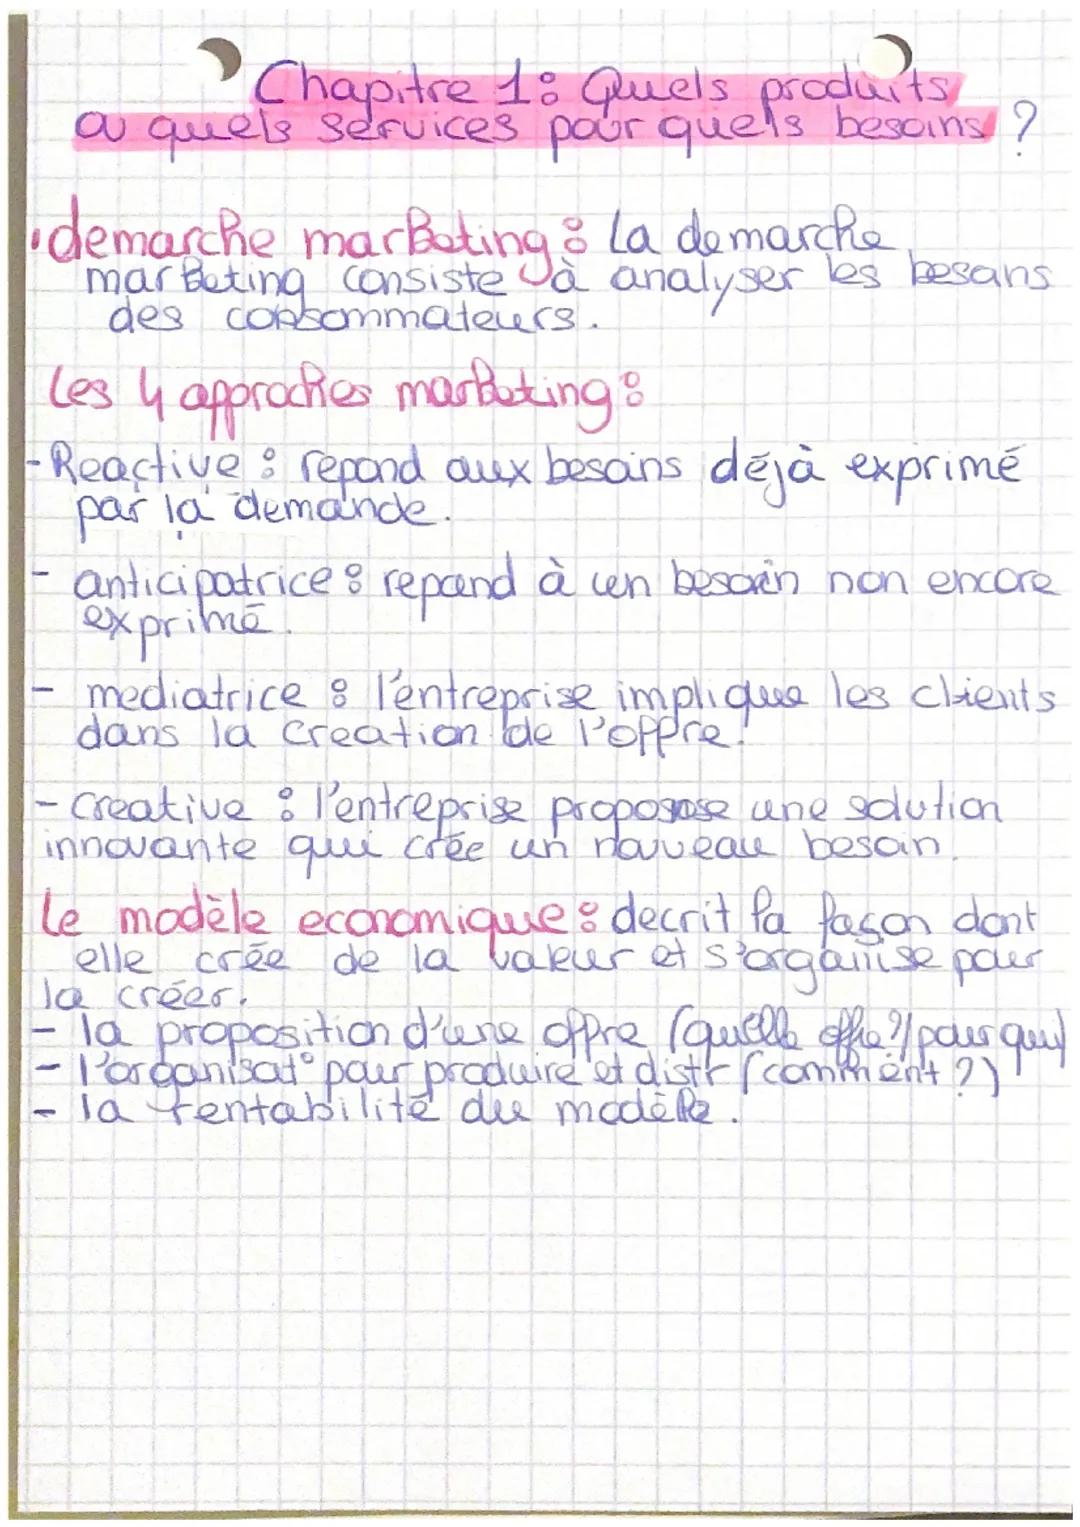 Chapitre 1: Quels produits
ou quels services pour quels besoins ?
• demarche marketing : La demarche
marketing consiste à analyser les besoins
des consommateurs.
Les 4 approches marketing :
- Reactive : repond aux besoins déjà exprimé
par la demande.
- anticipatrice : repond à un besoin non encore
exprimé.
- mediatrice : l'entreprise implique les clients
dans la creation de l'offre.
- creative : l'entreprise propose une solution
innovante qui crée un nouveau besoin.
Le modèle economique : decrit la façon dont
elle crée de la valeur et s'organise pour
la créer.
- la proposition d'une offre (quelle offre ?/pour qui)
- l'organisat° pour produire et distr (comment ?)
- la rentabilité du modèle.